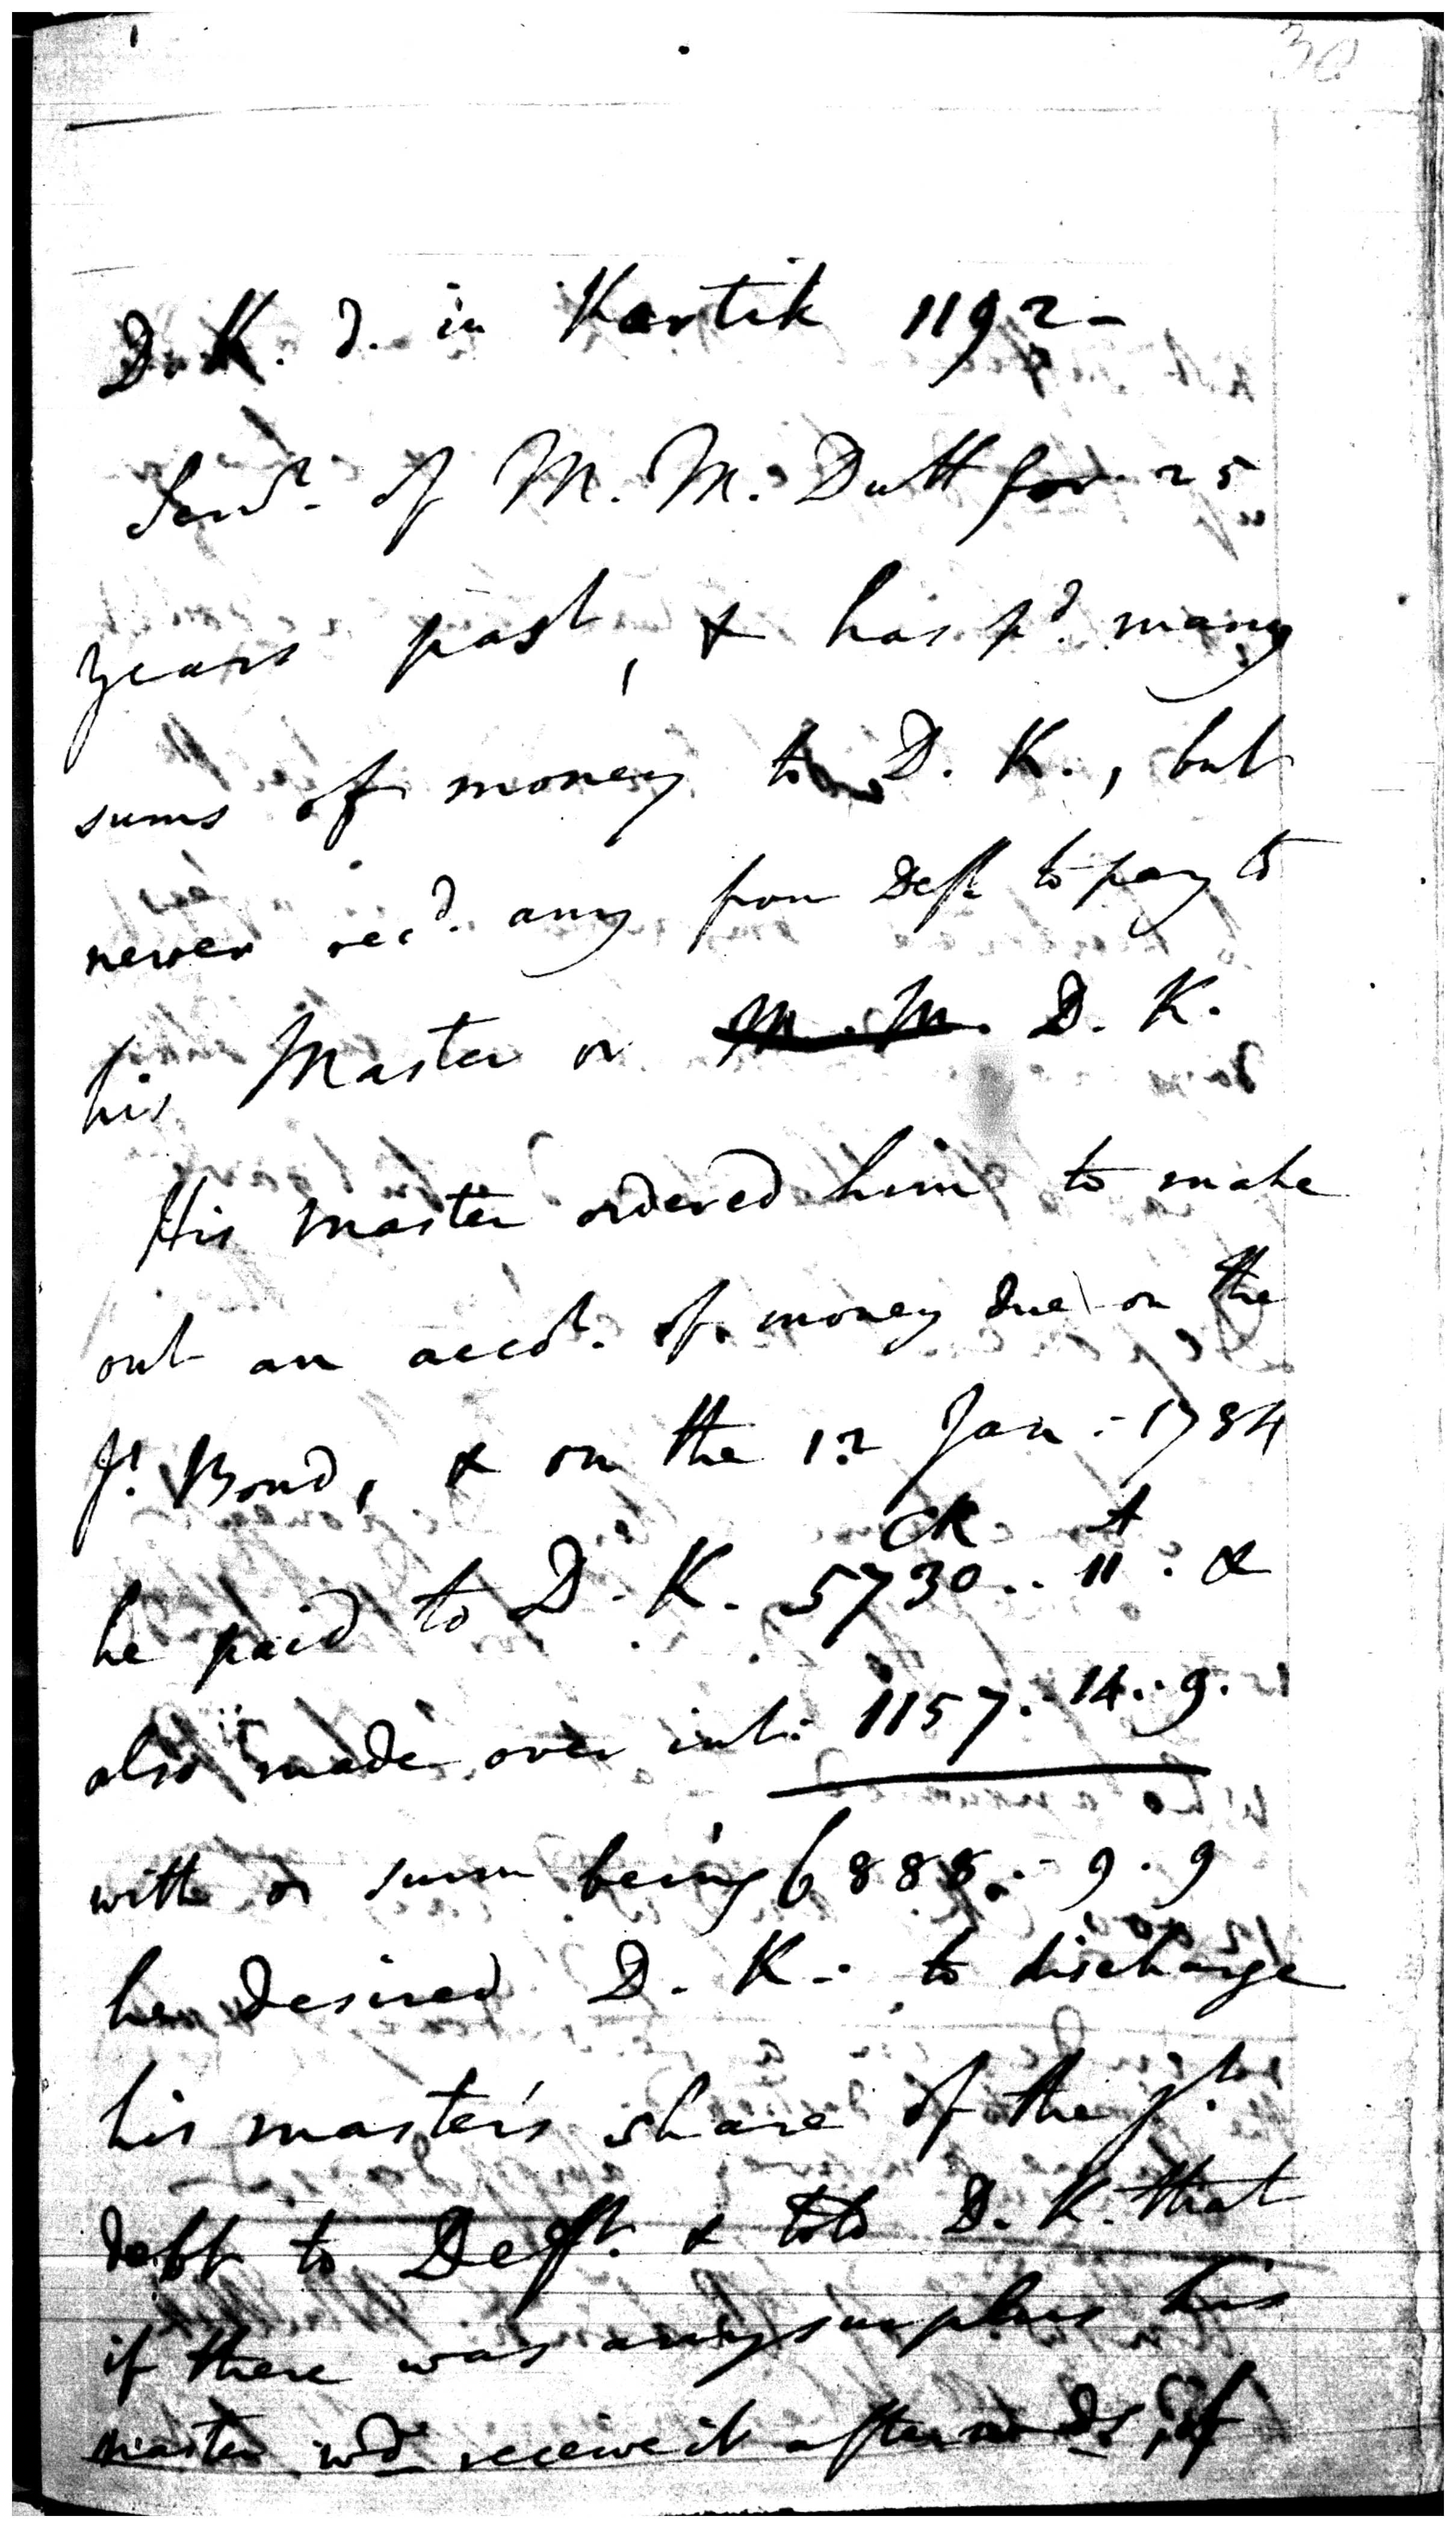 30
D. K. d. in Kartik 1192 -
Servt. of M. M. Dutt for 25
years past, & has pd. many
sums of money to D. K., but
never recd. any from Deft to pay to
his Master or M. M. D. K.
His master ordered him to make
out an acct. of money due on the
Jt. Bond, & on the 12 Jan: 1784
CR A
he paid to D. K. 5730.. 11 : &
also made over int: 1157.. 14.. 9.
with sum being 6888.. 9. 9
he desired D. K. to discharge
his master's share of the Jt.
debt to Deft. & told D. K. that
if there was any surplus his
master wd receive it afterwards, if